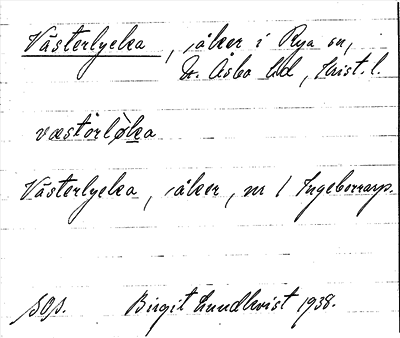 Västerlycka, åker i Rya sn,
N. Åsbo hd, Krist. l.
væstərløka
Västerlycka, åker, nr 1 Ingeborrarp.
sop. Birgit Lundkvist 1938.